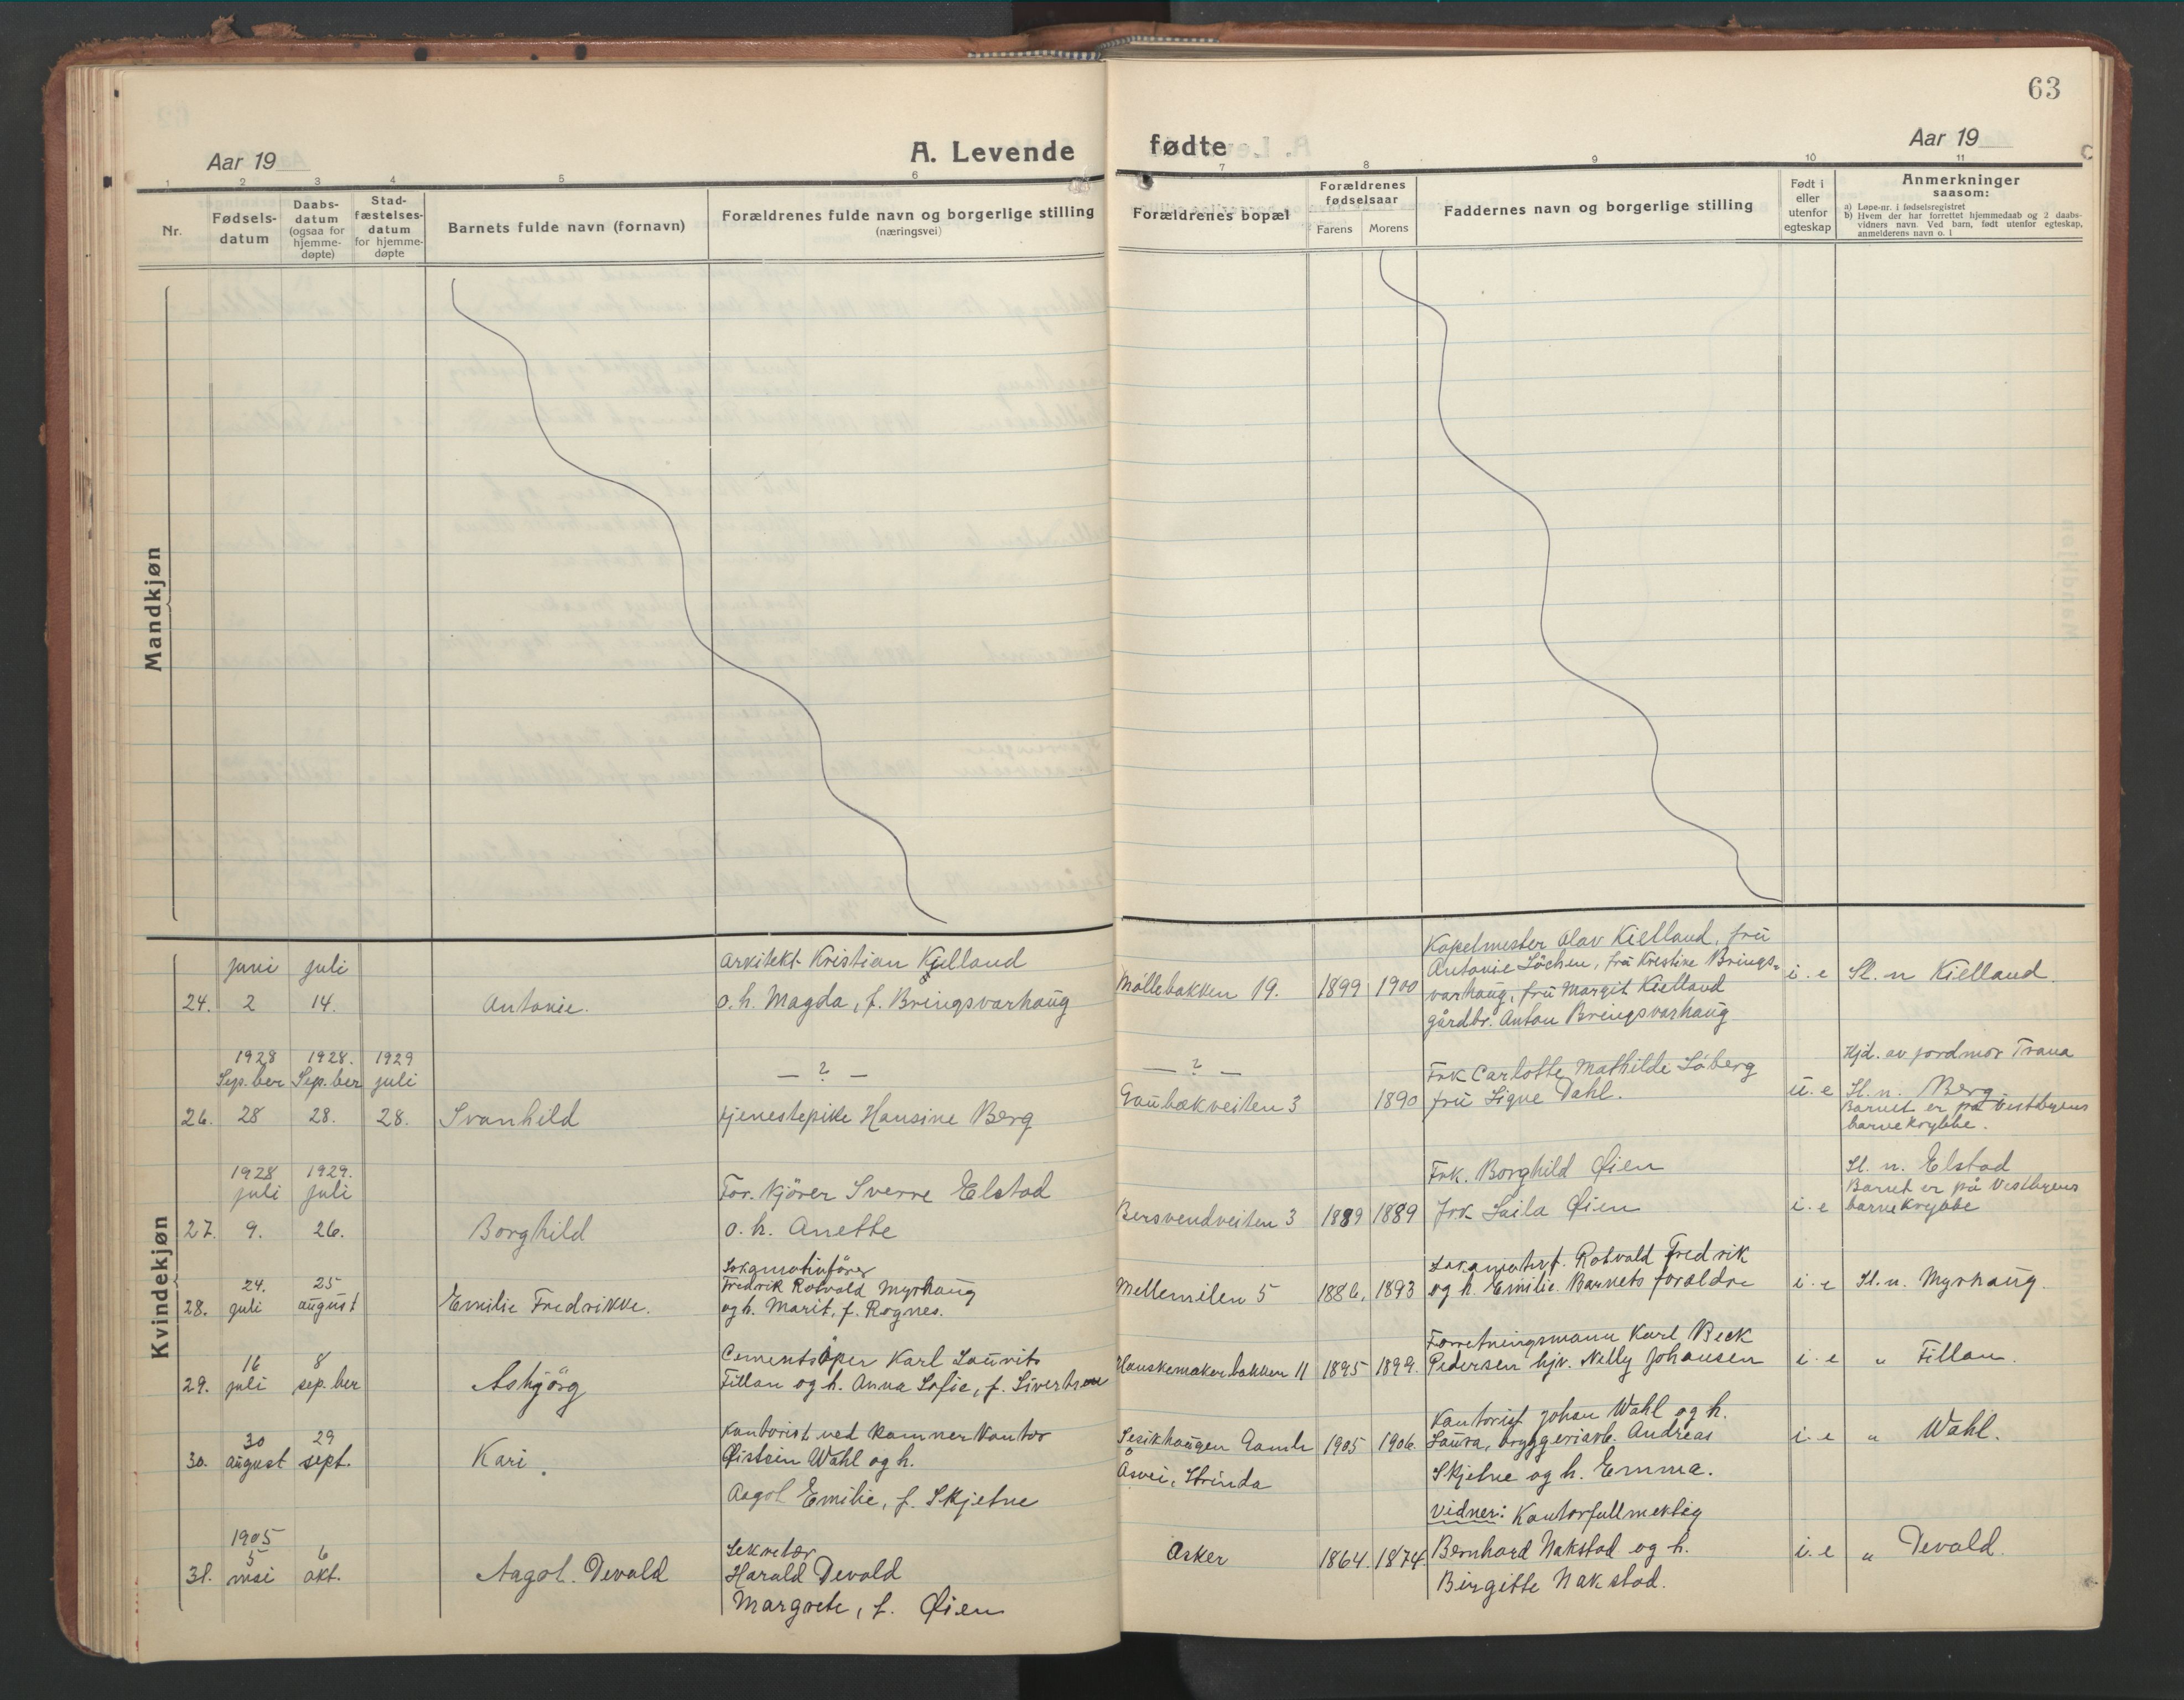 63
Aar 19
A. Levende
fødte
Aar 19
1 2 3 4 5 6 7 8 9 10 11
Nr.
Fødsels-
datum
Daabs-
datum
(ogsaa for
hjemme-
døpte)
Stad-
fæstelses-
datum
for hjemme-
døpte
Barnets fulde navn (fornavn)
Forældrenes fulde navn og borgerlige stilling
(næringsvei)
Forældrenes bopæl
Forældrenes
fødselsaar
Farens Morens
Faddernes navn og borgerlige stilling
Født i
eller
utenfor
egteskap
Anmerkninger
saasom:
a) Løpe-nr. i fødselsregistret
b) Hvem der har forrettet hjemmedaab og 2 daabs-
vidners navn. Ved barn, født utenfor egteskap,
anmelderens navn o. l
Mandkjøn
Kvindekjøn
juni juli
24. 2 14.
Antonie.
Arkitekt Kristian Kjelland
o. h. Magda, f. Bringsvarhaug
Møllebakken 19. 1899 1900
Kapelmester Olav Kielland, fru
Antonie Löchen, fru Kristine Brings-
varhaug, fru Margit Kielland
gårdbr. Anton Bringsvarhaug
i. e
Sl. n Kielland.
1928 1928. 1929
Sep.ber Sep.ber juli
26. 28 28. 28.
Svanhild
— ? —
tjenestepike Hansine Berg
— ? —
Gaubækveiten 3 1890
Frk Carlotte Mathilde Söberg
fru Signe Dahl.
u. e
Hjd. av jordmor Trana
Sl. n. Berg.
Barnet er på Vestbyens
barnekrybbe.
1928 1929.
juli juli
27. 9. 26.
Borghild
For. kjörer Sverre Elstad
o. h. Anette
Bersvendveiten 3 1889 1889
Frk. Borghild Øien
Frk Laila Øien
i. e
Sl. n. Elstad
Barnet er på Vestbyens
barnekrybbe
24. 25
28. juli august
Emilie Fredrikke.
Lokomotivförer
Fredrik Rotvold Myrhaug
og h. Marit, f. Rognes.
Mellemilen 5 1886, 1893
Lokomotivf. Rotvold Fredrik
og h. Emilie. Barnets foraldre
i. e
Sl. n. Myrhaug.
16 8
29. juli sep.ber
Asbjörg
Cementstöper Karl Laurits
Fillan og h. Anna Sofie, f. Sivertsen
Hanskemakerbakken 11 1895 1899.
Forretningsmann Karl Beck
Pedersen hjv. Nelly Johansen
i. e
" Fillan.
30 29
30. august sept.
Kari
Kontorist ved kæmnerkontor
Øistein Wahl og h.
Aagot Emilie, f. Skjetne
Gamle
Åsvei, Strinda
1905 1906.
Kontorist Johan Wahl og h.
Laura, bryggeriarb. Andreas
Skjetne og h. Emma.
i. e
" Wahl.
1905
5 6
31. mai okt.
Aagot. Devold
Sekretær
Harald Devold
Margrete, f. Øien
Asker 1864. 1874.
Vidner: Kontorfullmektig
Bernhard Nakstad og h.
Birgitte Nakstad.
i. e
" Devold.